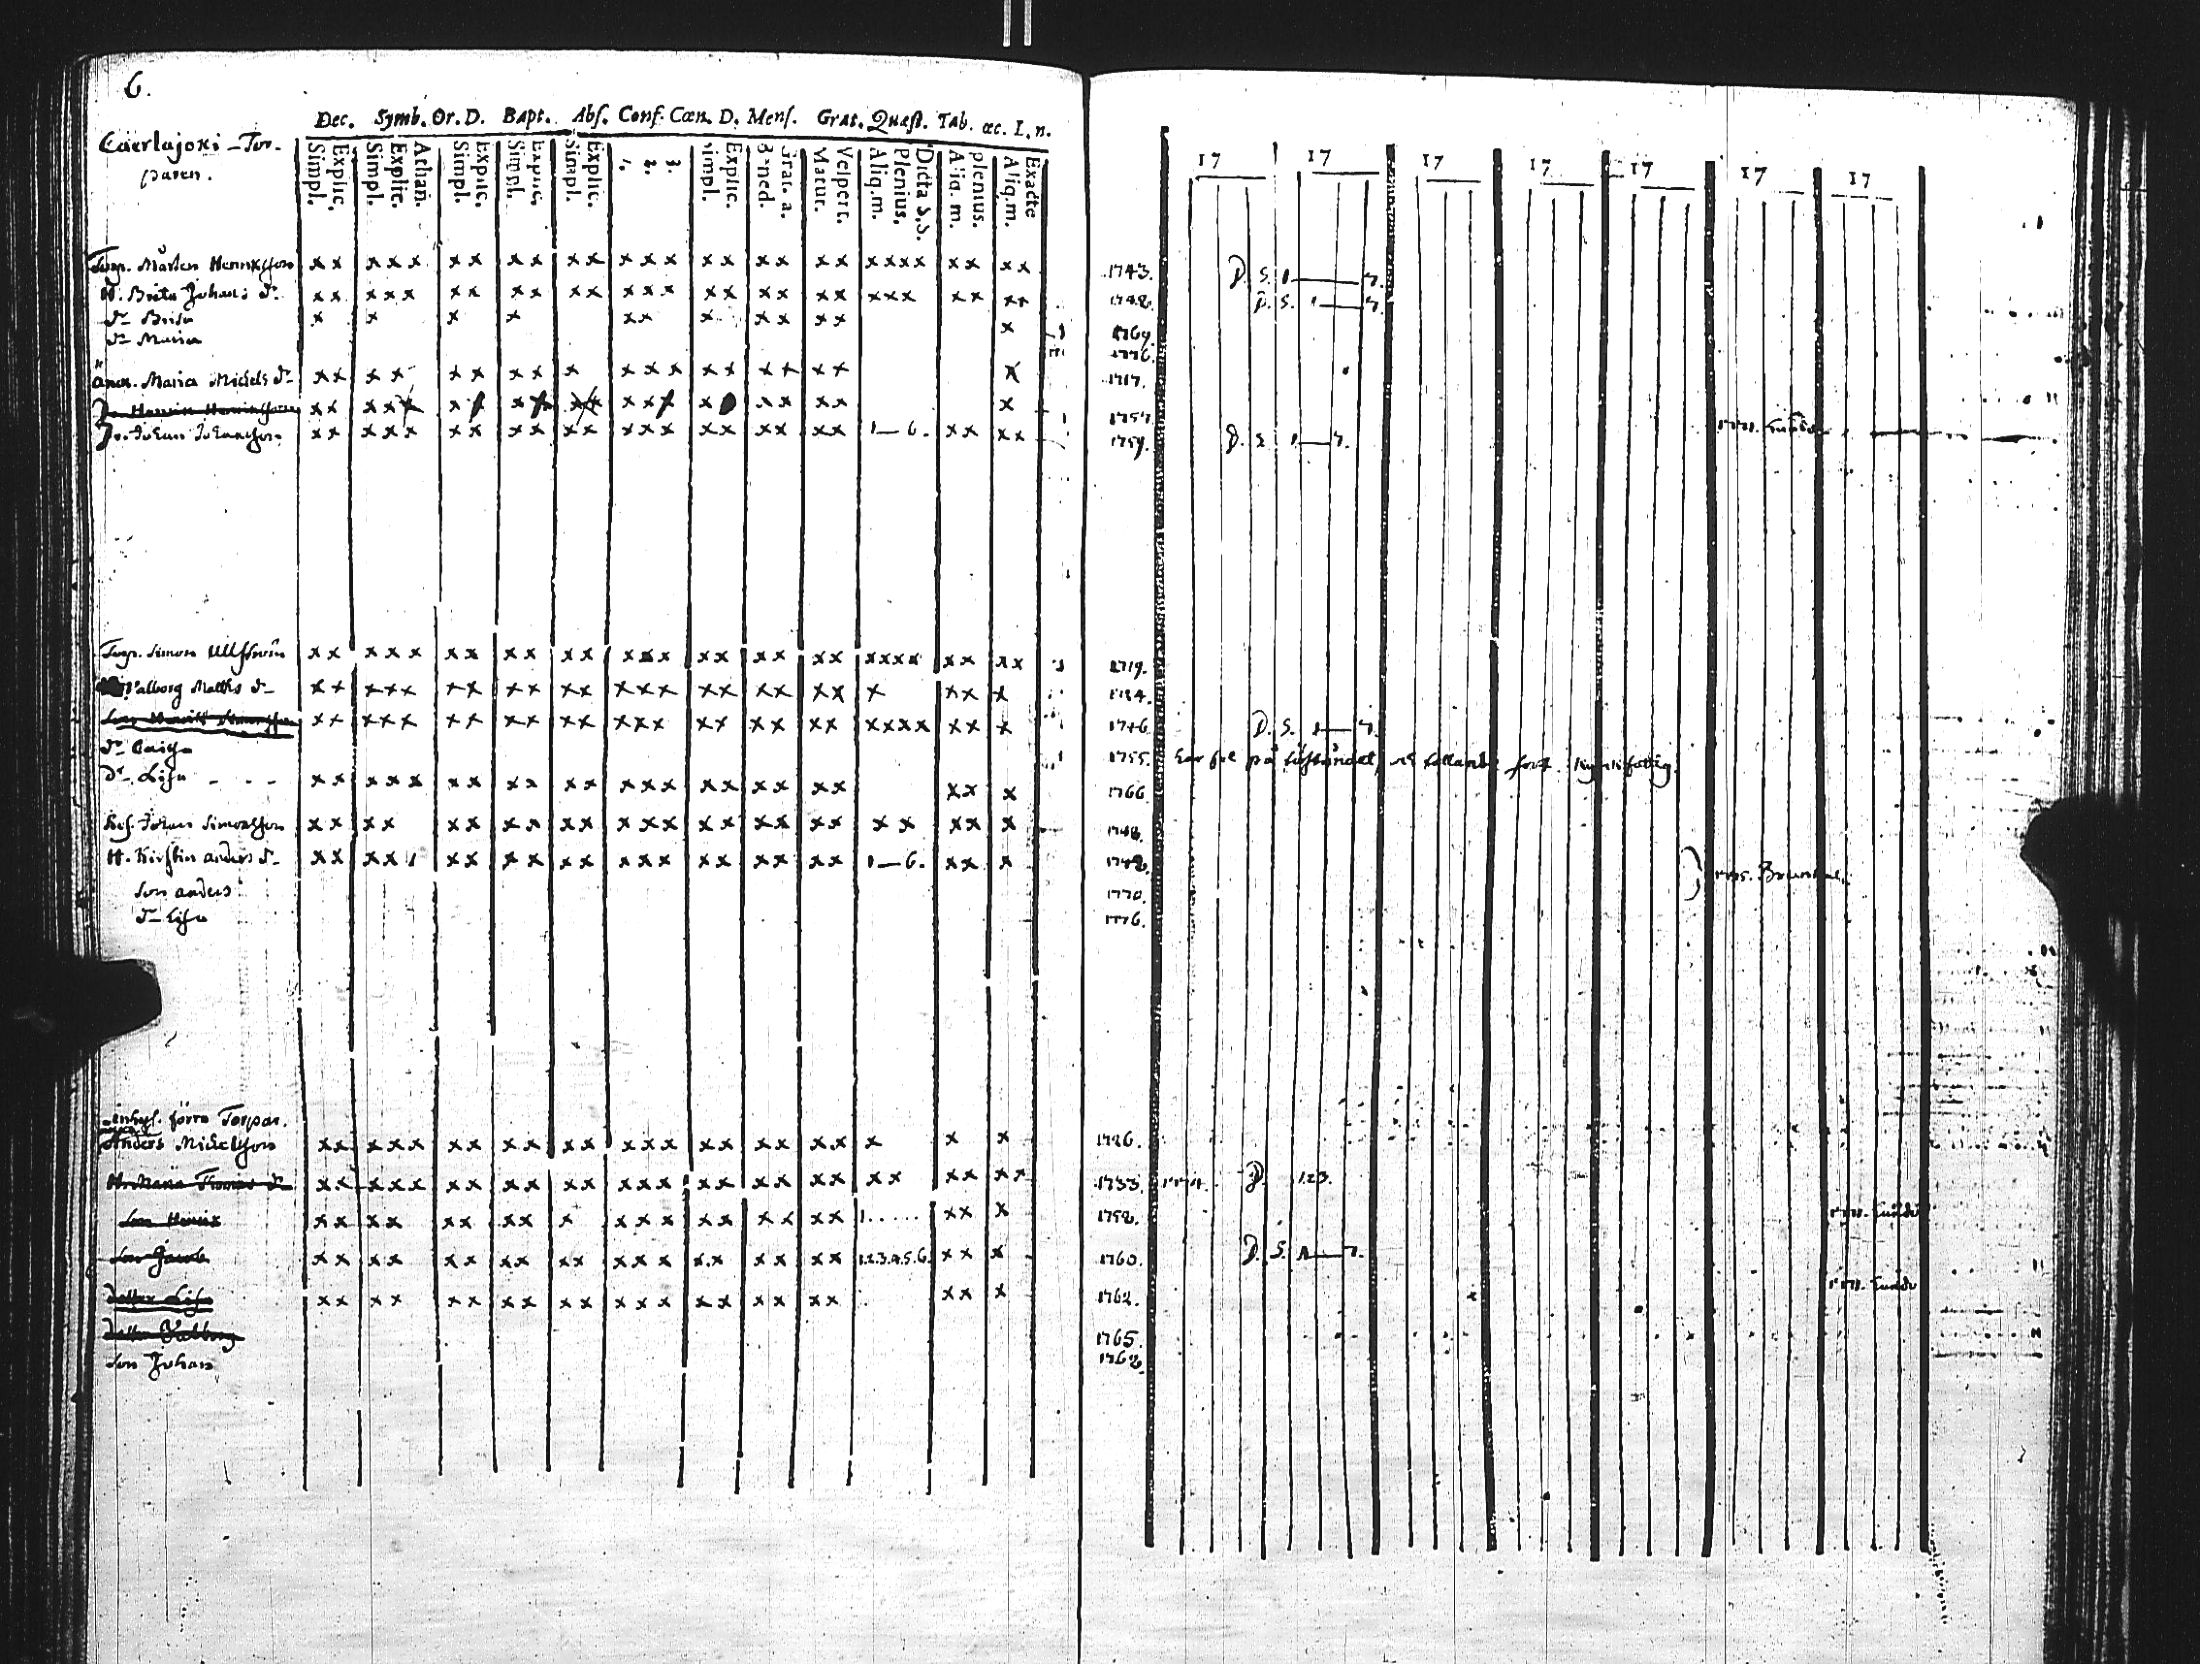 6.
Dec. Symb. Or. D. Bapt. Abs. Conf. Cœn. D. Mens. Grat. Quæst. Tab. œc. I. n.
Caerlajoki - Tor-
paren.
Explic. Simpl. Athan. Explic. Simpl. Explic. Simpl. Explic. Simpl. Explic. Simpl. 1. 2. 3. Explic. Simpl. Grat. a. Bened. Vespert. Matut. Dicta S. S. Plenius. Aliq. m. plenius. Aliq. m. Exacte Aliq. m.
17 17 17 17 17 17 17
Torp. Mårten Henricsson x x x x x x x x x x x x x x x x x x x x x x x x x x x 1743. D. S. 1 — 7.
H. Brita Johans dr x x x x x x x x x x x x x x x x x x x x x x x x x x D. S. 1 — 7.
dr Brisa x x x x x x x x x x x x 1769.
dr Maria 1776.
änk. Maria Michels dr x x x x x x x x x x x x x x x x x x x 1717.
x x x x x x x x x x x x x x x x x x 1757.
Johan Johansson x x x x x x x x x x x x x x x x x x x x 1 — 6. x x x x 1759. D. S. 1 — 7.
Torp. Simon x x x x x x x x x x x x x x x x x x x x x x x x x x x x 1719.
Valborg Matts dr x x x x x x x x x x x x x x x x x x x x x x x x
x x x x x x x x x x x x x x x x x x x x x x x x x x x 1746. D. S. 1 — 7.
dr Caisa 1755. på
dr Lisa - - - x x x x x x x x x x x x x x x x x x x x x x x 1766.
Johan Simonsson x x x x x x x x x x x x x x x x x x x x x x x x 1748.
H. Kirstin anders dr x x x x 1 x x x x x x x x x x x x x x x x 1 — 6. x x x 1748.
Son anders 1770.
dr Lisa 1776.
inhys. förra Torpar.
Anders Michelsson x x x x x x x x x x x x x x x x x x x x x x x 1726.
H. Maria Thomas dr x x x x x x x x x x x x x x x x x x x x x x x x x x 1733. D. 123.
Son Henric x x x x x x x x x x x x x x x x x x 1..... x x x 1758.
Son Jacob x x x x x x x x x x x x x x x x x x x 1.2.3.4.5.6. x x x 1760. D. S. 1 — 7.
dotter Lisa x x x x x x x x x x x x x x x x x x x x x x 1762.
dotter Valborg 1765.
Son Johan 1768.